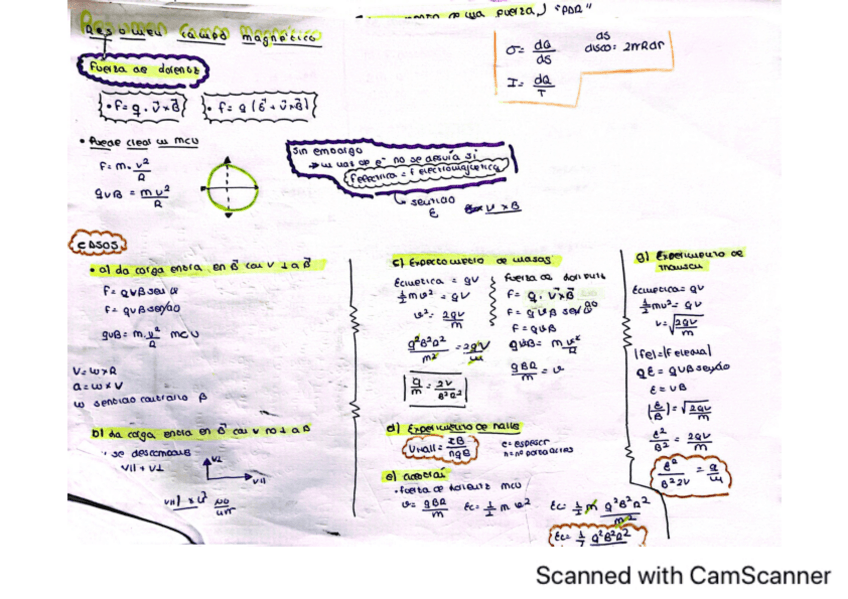 Resumen campo magnético
fuerza, "PDR"
σ = dQ/dS
dS disco = 2πRdr
I = dQ/T
Fuerza de Lorentz
• F = q · v⃗ x B⃗
• F = q (E⃗ + v⃗ x B⃗)
• Puede crear un MCU
F = m · v²/R
qvB = mv²/R
Sin embargo
no se desvía si
Felectrica = F electromagnetica
sentido E
v x B
CASOS
• a) da carga entra en B⃗ con v ⊥ a B⃗
F = qvB sen α
F = qvB sen90
qvB = m v²/R MCU
V = w x R
a = w x v
w sentido contrario B
b) da carga entra en B⃗ con v no ⊥ a B
se descompone
v|| + v⊥
v⊥
v||
c) Espectometro de masas
Ecinetica = qV
½mv² = qV
v² = 2qV/m
q²B²R²/m² = 2qV/m
q/m = 2V/B²R²
fuerza de Lorentz
F = q · v⃗ x B⃗
F = qvB sen90
F = qvB
qvB = m v²/R
qBR/m = v
d) Experimento de Halls
Vhall = IB/nqe
e = espesor
e)
• fuerza de Lorentz MCU
v = qBR/m
Ec = ½ m v²
Ec = ½ m q²B²R²/m²
Ec = ½ q²B²R²
g) Experimento de
Ecinetica = qV
½mv² = qV
v = √2qV/m
|Fel| = |F
qE = qvB sen90
E = vB
(E/B) = √2qV/m
E²/B² = 2qV/m
E²/B²2V = q/m
Scanned with CamScanner